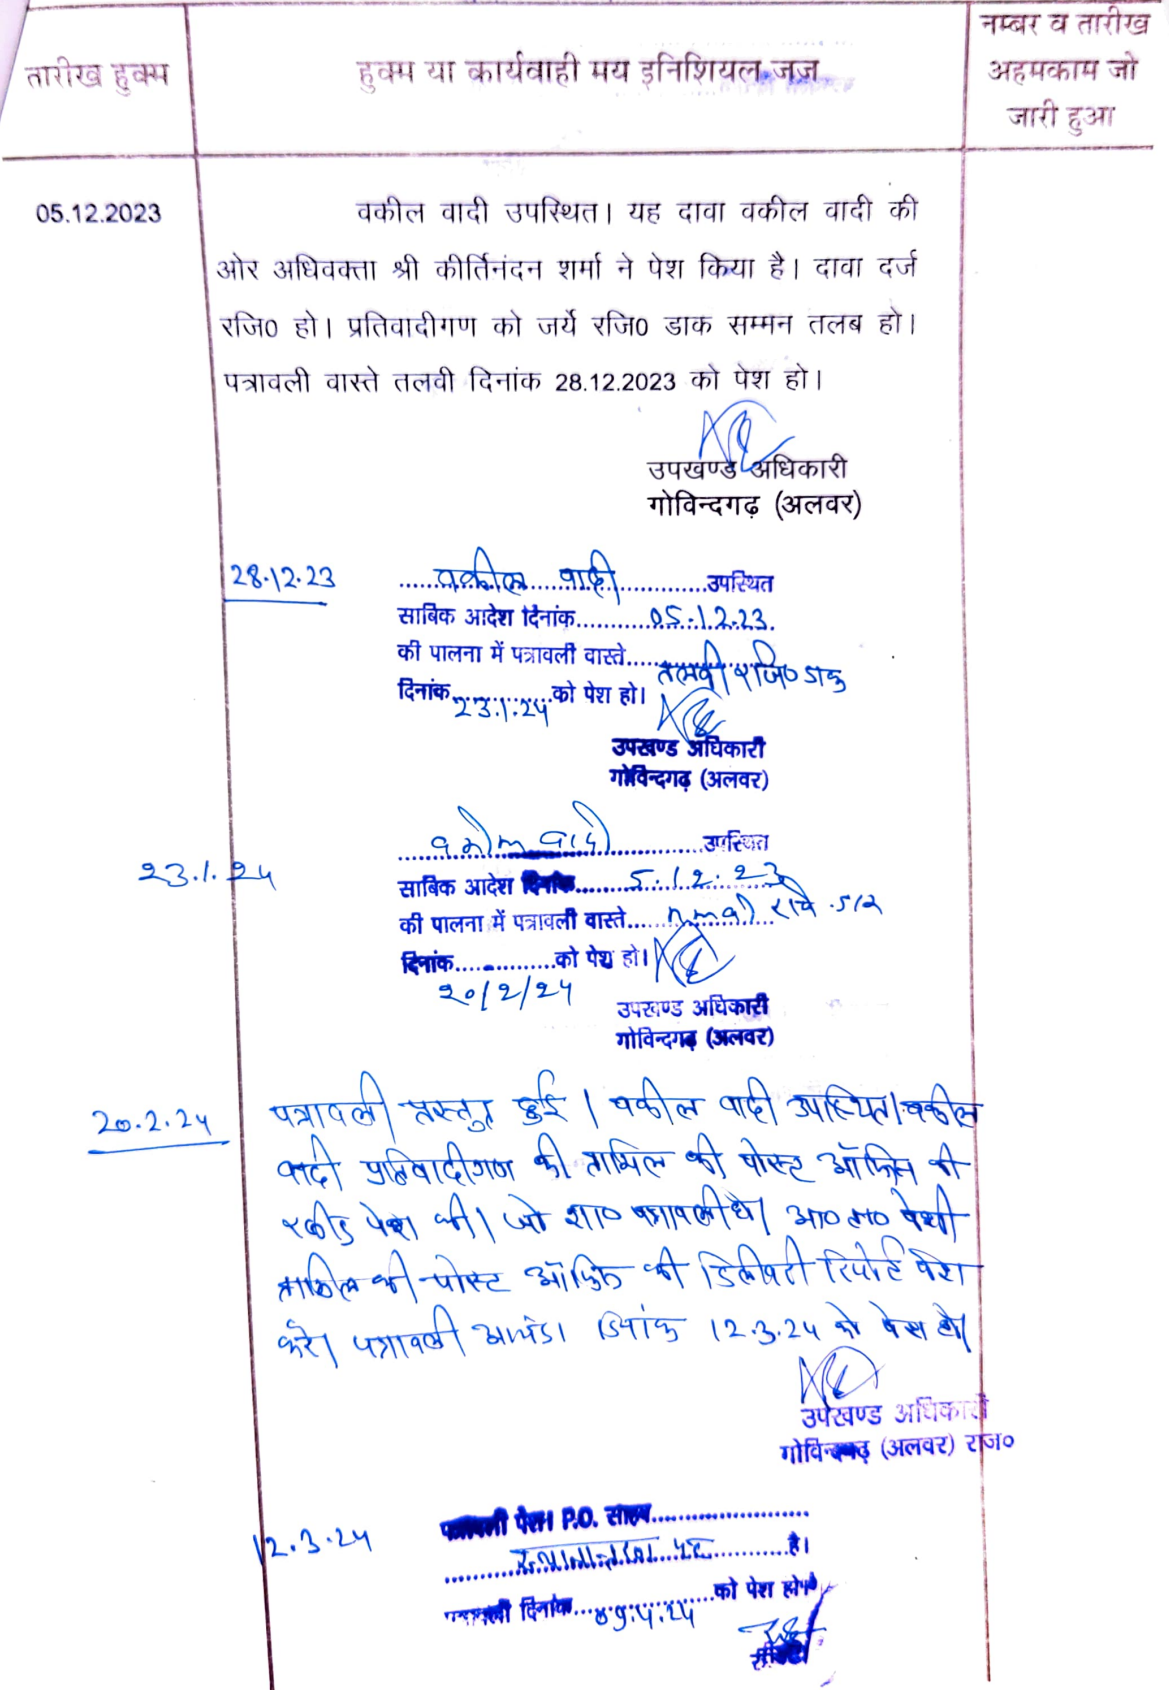 तारीख हुक्म
हुक्म या कार्यवाही मय इनिशियल जज
नम्बर व तारीख
अहमकाम जो
जारी हुआ
05.12.2023
वकील वादी उपस्थित। यह दावा वकील वादी की
ओर अधिवक्ता श्री कीर्तिनंदन शर्मा ने पेश किया है। दावा दर्ज
रजि0 हो। प्रतिवादीगण को जर्ये रजि0 डाक सम्मन तलब हो।
पत्रावली वास्ते तलवी दिनांक 28.12.2023 को पेश हो।
उपखण्ड अधिकारी
गोविन्दगढ़ (अलवर)
28.12.23
वकील वादी उपस्थित
साबिक आदेश दिनांक 05.12.23
की पालना में पत्रावली वास्ते तलवी रजि० डाक
दिनांक 23.1.24 को पेश हो।
उपखण्ड अधिकारी
गोविन्दगढ़ (अलवर)
23.1.24
वकील वादी उपस्थित
साबिक आदेश दिनांक 5.12.23
की पालना में पत्रावली वास्ते
दिनांक 20/2/24 को पेश हो।
उपखण्ड अधिकारी
गोविन्दगढ़ (अलवर)
20.2.24
पत्रावली प्रस्तुत हुई। वकील वादी उपस्थित। वकील
वादी प्रतिवादीगण की तामिल की पोस्ट ऑफिस की
रसीद पेश की। जो शा० पत्रावली है। पेशी
तामिल की पोस्ट ऑफिस की डिलीवरी रिपोर्ट पेश
करे। पत्रावली दिनांक 12.3.24 को पेश हो।
उपखण्ड अधिकारी
गोविन्दगढ़ (अलवर) राज०
12.3.24
पत्रावली पेश। P.O. साहब
है।
पत्रावली दिनांक 09.4.24 को पेश हो।
रीडर